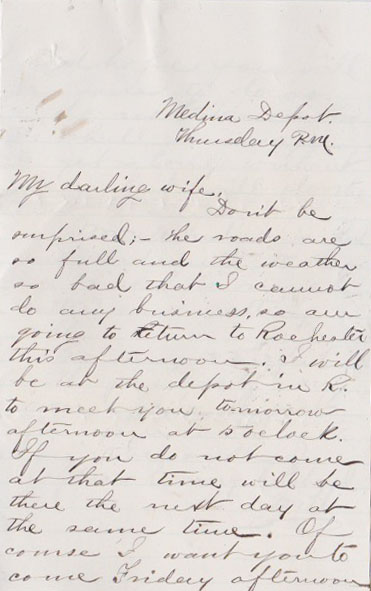 Medina Depot.
Thursday P.M.
My darling wife,
Don't be
surprised;- the roads are
so full and the weather
so bad that I cannot
do any business, so am
going to return to Rochester
this afternoon. I will
be at the depot in R.
to meet you tomorrow
afternoon at 5 oclock.
If you do not come
at that time will be
there the next day at
the same time. Of
course I want you to
come Friday afternoon